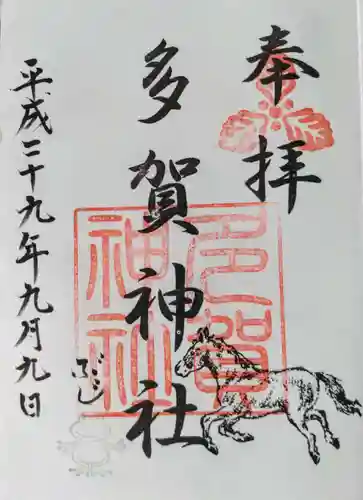 奉拝
多賀神社
平成二十九年九月九日
多賀
神社